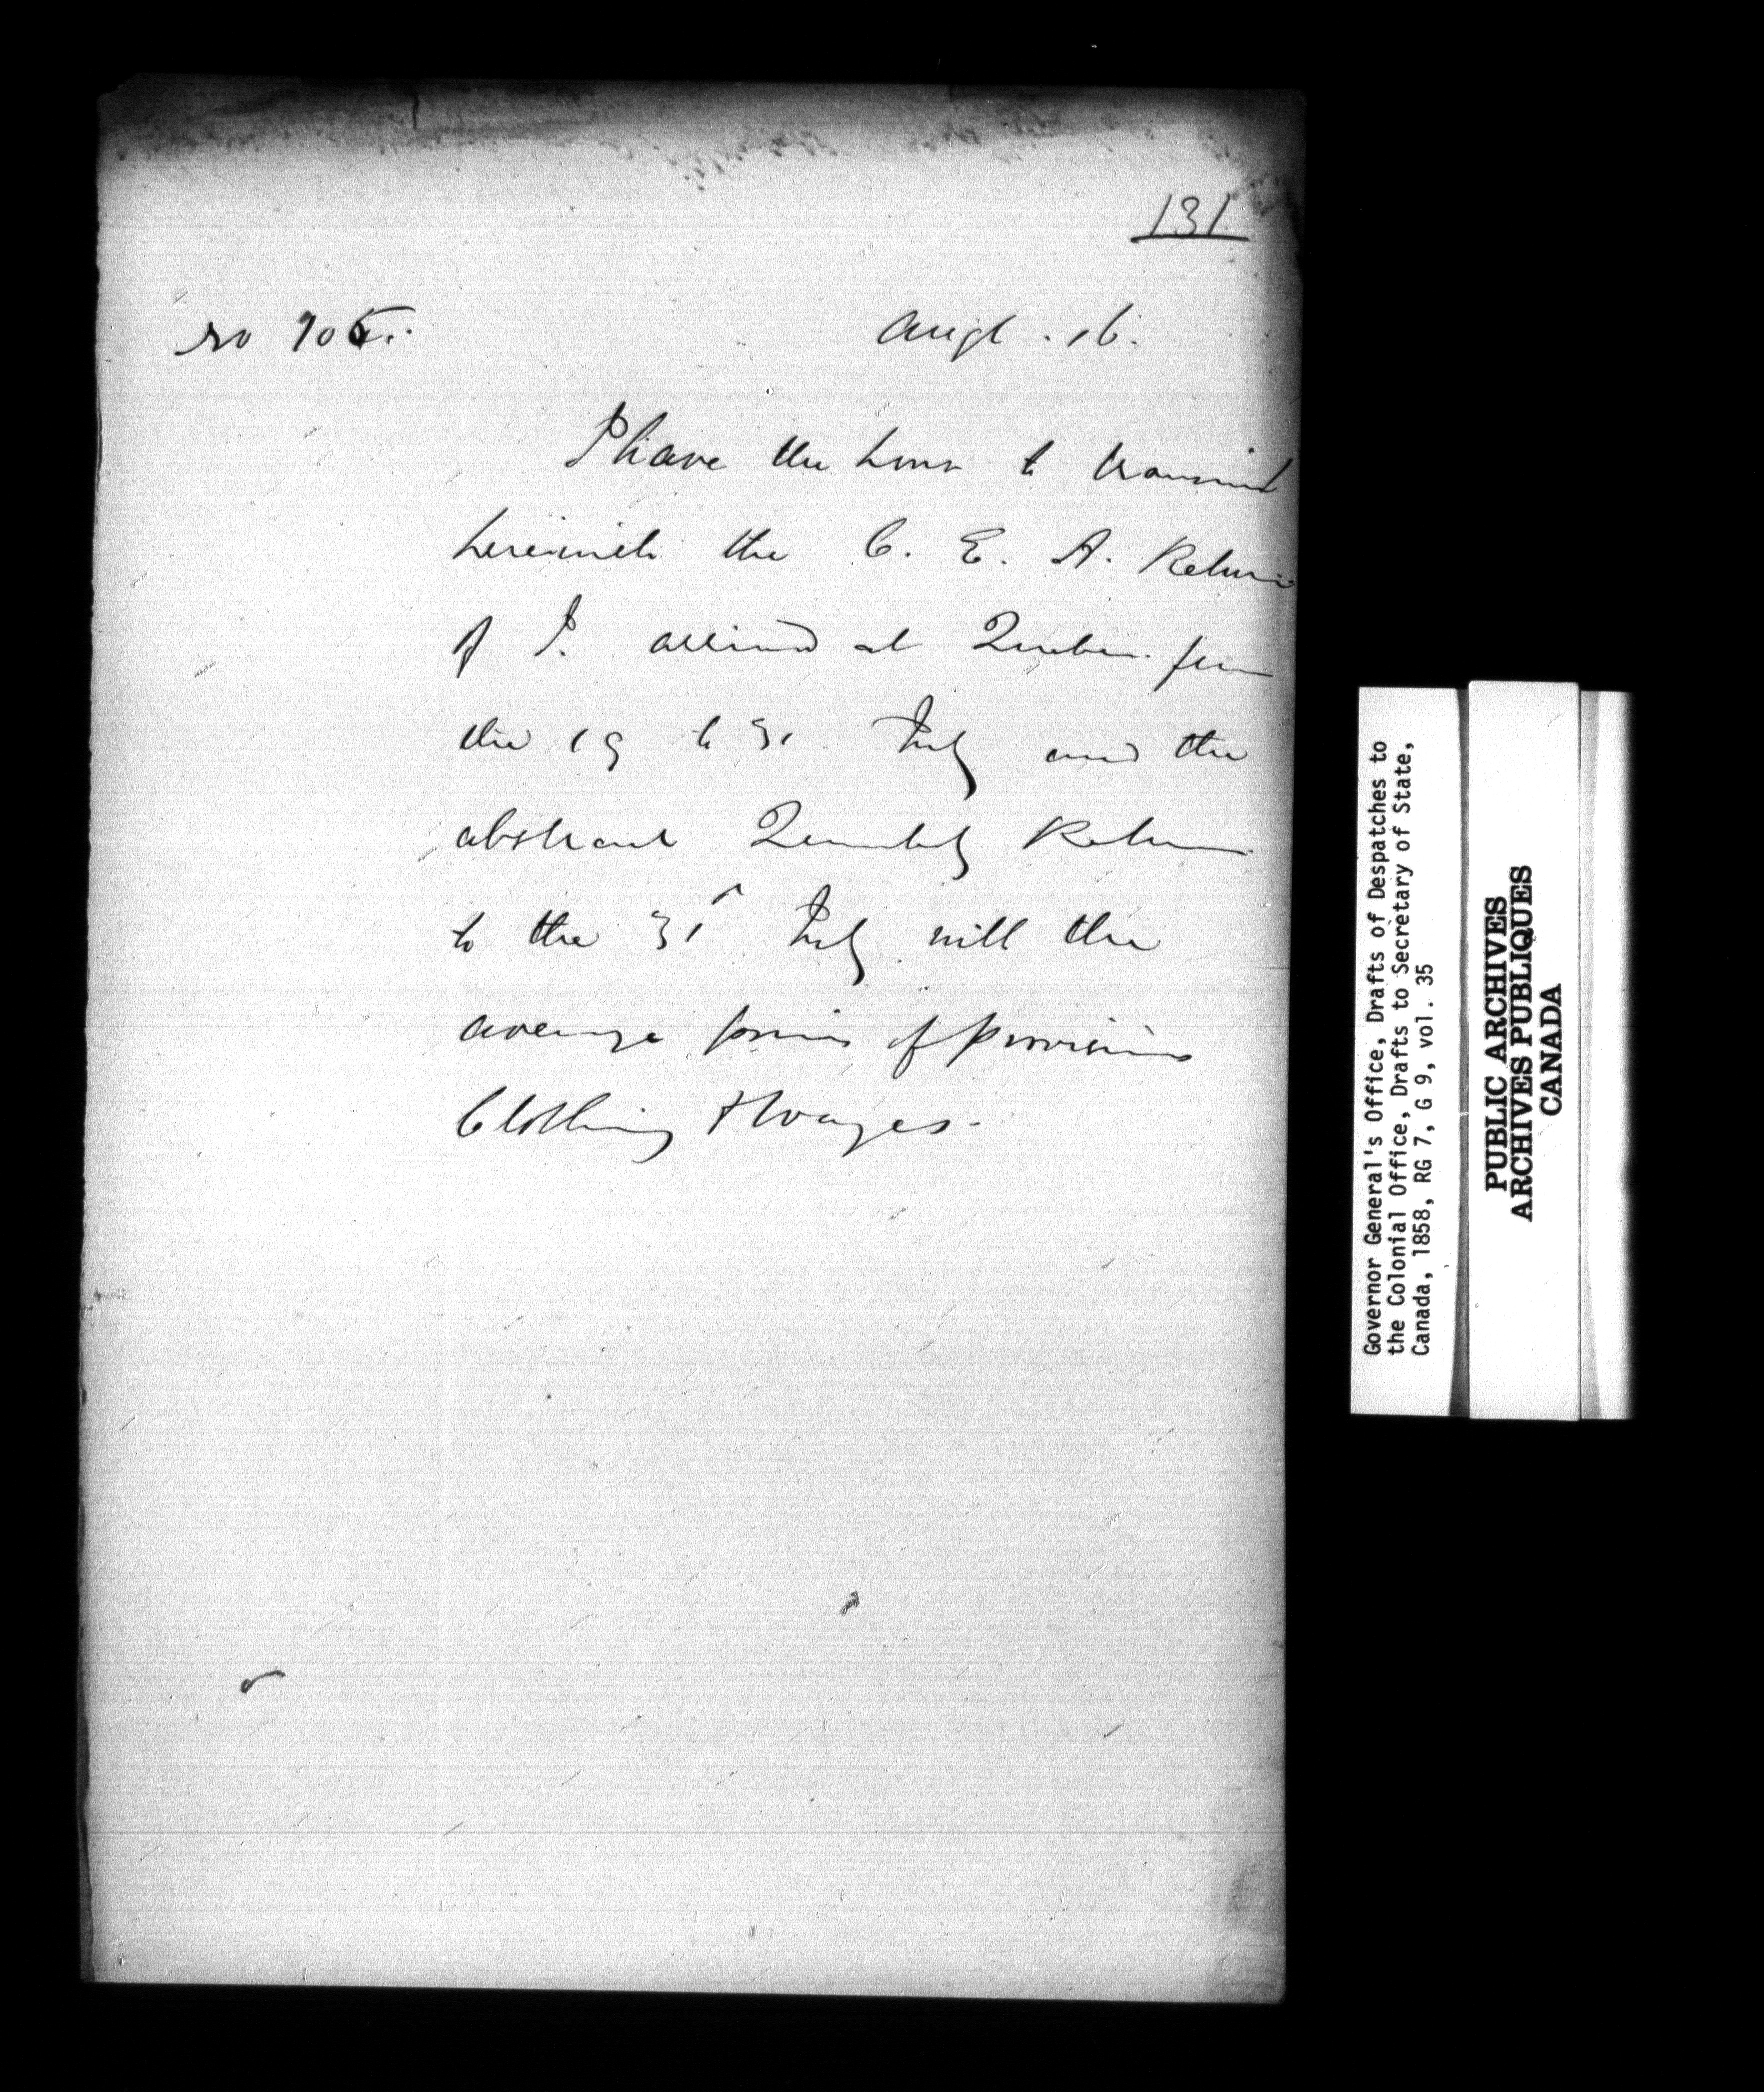 131
No 105.
Augt. 16.
I have the honor to transmit
herewith the C. E. A. Return
of P. arrived at Quebec from
the 19 to 31 July and the
abstract Quarterly Return
to the 31 July with the
average prices of provisions
Clothing & Wages.
Governor General's Office, Drafts of Despatches to
the Colonial Office, Drafts to Secretary of State,
Canada, 1858, RG 7, G 9, vol. 35
PUBLIC ARCHIVES
ARCHIVES PUBLIQUES
CANADA